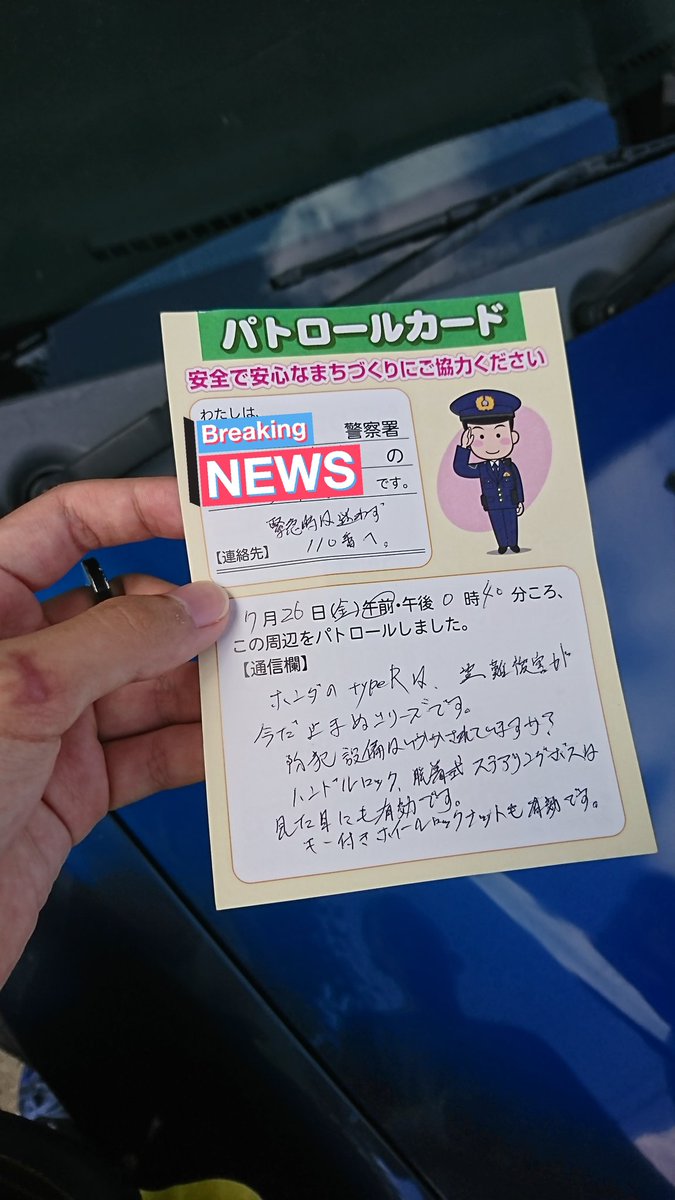 パトロールカード
安全で安心なまちづくりにご協力ください
わたしは、
Breaking
NEWS
警察署
の
です。
緊急時は迷わず
【連絡先】 110番へ。
7月26日(金)午前・午後0時40分ころ、
この周辺をパトロールしました。
【通信欄】
ホンダのtypeRは、盗難被害が
今だ止まぬシリーズです。
防犯設備はいかがされていますか?
ハンドルロック、脱着式ステアリングボスは
見た目にも有効です。
キー付きホイールロックナットも有効です。